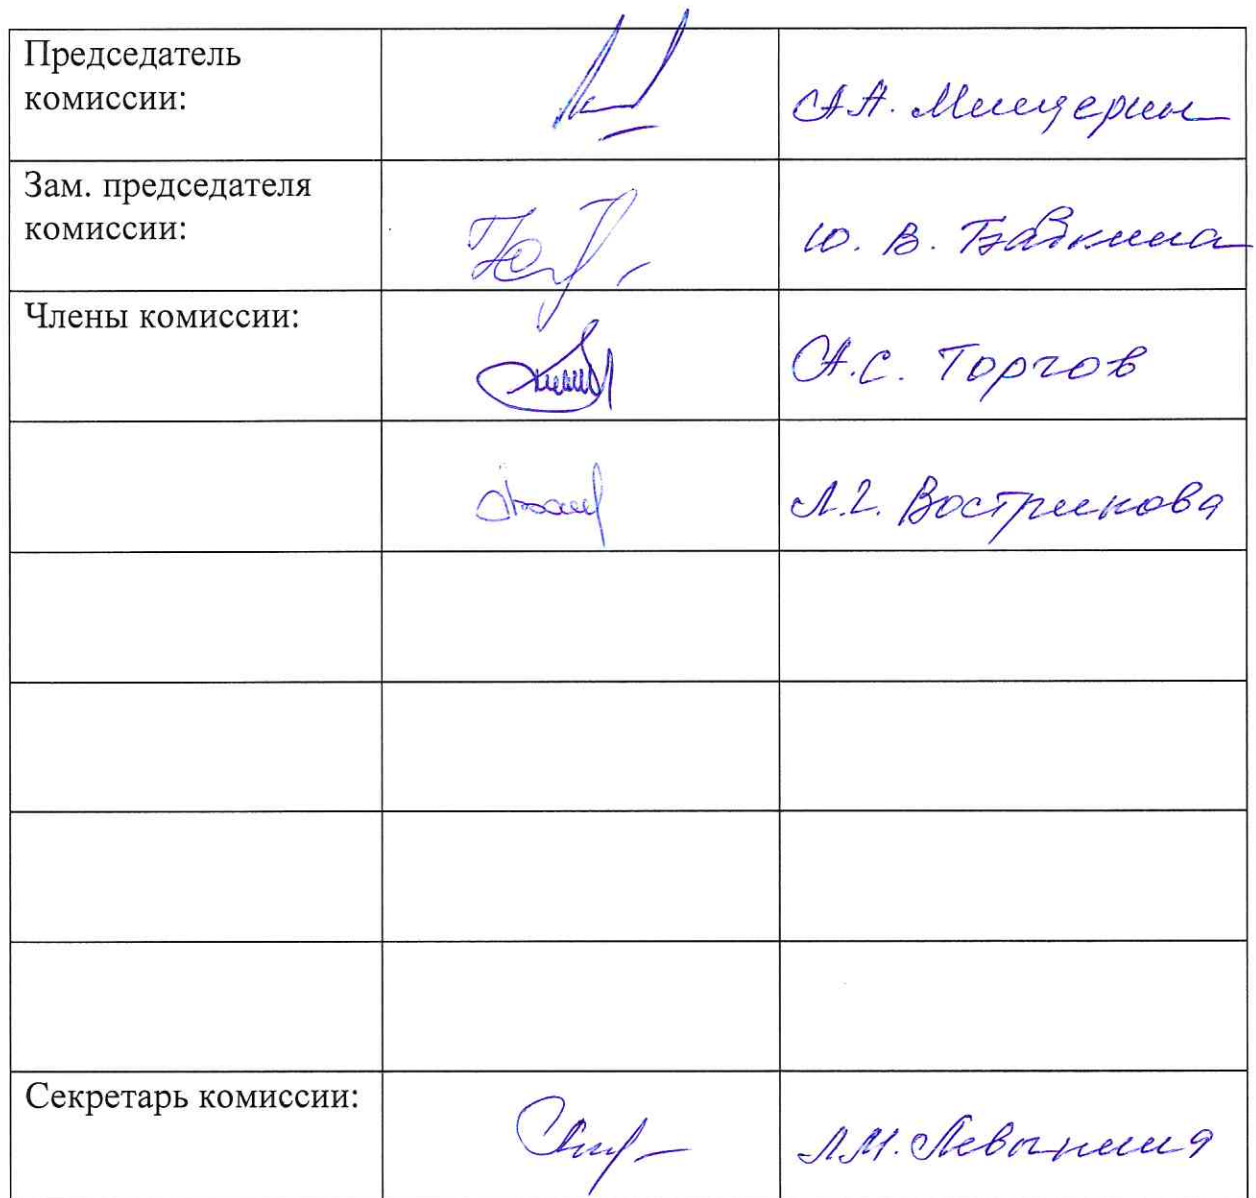 Председатель
комиссии:
А.А. Мищерин
Зам. председателя
комиссии:
Ю. В. Бабкина
Члены комиссии:
А.С. Торгов
Л.Г. Вострикова
Секретарь комиссии:
Л.М.